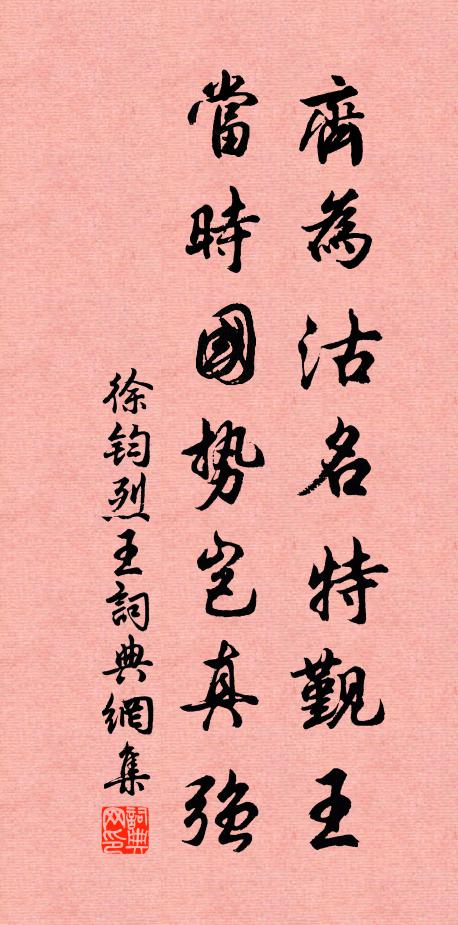 齊為沽名特覲王
當時國勢豈真强
徐鈞烈王詞典網集
詞典网印